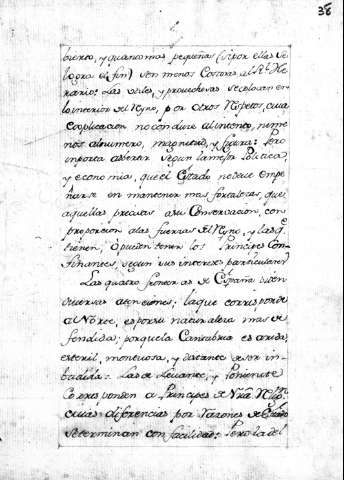 38
bierto, y quanto mas pequeñas (si por ellas se
logra el fin) son menos costosas al Rl. He-
rario: Las utiles, y provechosas se colocan en
lo interior del Reyno, por otros respetos, cuia
explicacion no conduce al intento, ni me-
nos al numero, magnitud, y figura: Pero
importa advertir segun la mejor Politica,
y economia, que el Estado no deve empe-
ñarse en mantener mas fortalezas, que
aquellas precisas a su Conservacion, con
proporcion a las fuerzas del Reyno, y las q.
tienen, o pueden tener los Principes Con-
finantes, segun sus intereses particulares
Las quatro fronteras de España piden
diversas atenciones; la que corresponde
al Norte, es por su naturaleza mas de-
fendida; porque la Cantabria es arida,
esteril, montuosa, y distante de ser in-
badida: Las de Levante, y Poniente
Corresponden a Principes de Nra. Relign.
cuias diferencias por razones de Estado
se terminan con facilidad: Pero la del